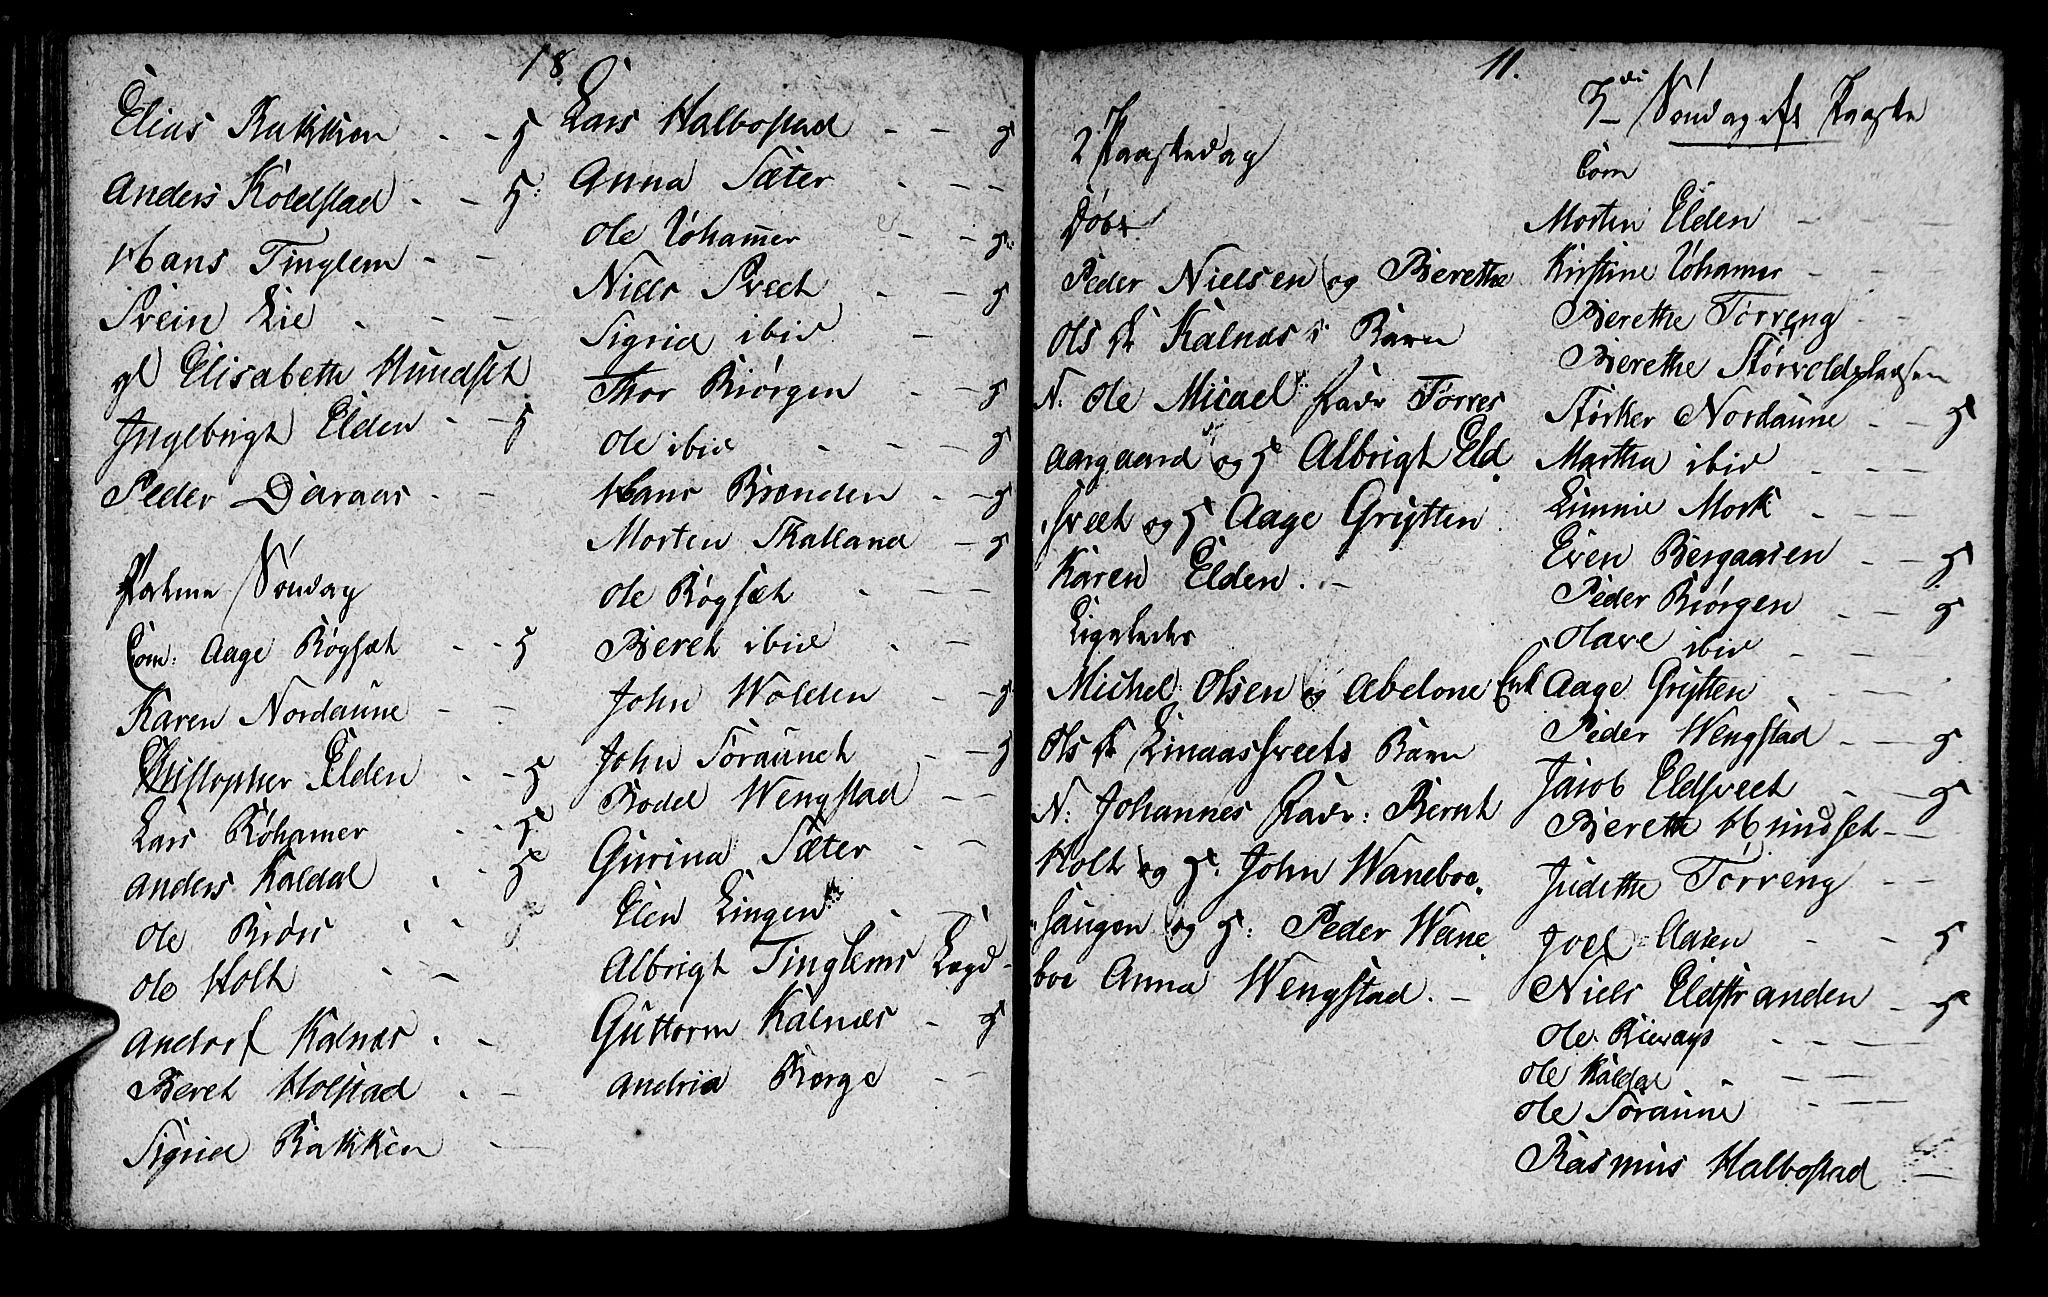 18
Elias Bakken - - 5
Anders Koldstad - - 5:
Hans Tinglem - -
Svein Lie - - -
gl Elisabeth Hundset
Ingebrigt Elden - - 5
Peder Daraas - -
Palma Søndag
Com: Aage Røgsæt - - 5
Karen Nordaune - -
Christopher Elden - - 5
Lars Røhamer - - 5e
Anders Kaldal - - 5e
Ole Biørs - - 5
Ole Holt - -
Andorf Kalnæs - -
Beret Holstad - -
Sigrid Bakken - -
Lars Halbostad - - 5
Anna Sæter - - -
Ole Røhamer - - 5:
Niels Sveet - - 5
Sigrid ibid -
Thor Biørgen - - 5
Ole ibid - - 5
Hans Brenden - - 5
Morten Skalland - 5
Ole Røgsæt - - -
Beret ibid - -
John Wolden - - 5
John Søraunet - - 5
Bodel Wengstad - -
Gurina Sæter - -
Elen Lingen -
Albrigt Tinglems Lægd -
Guttorm Kalnæs - 5
Andria Berge - -
11.
2 Paaskedag
Døbt
Peder Nielsen og Berethe
Ols Dr Kalnæs's Barn
N: Ole Micael Fadr Torres
aargaard og 5e Albrigt Eld
sveet og 5 Aage Grytten
Karen Elden. -
Ligeledes
Michel Olsen og Abelone Enk
Ols Dr Linaassveets Barn
N: Johannes Fadr: Bernt
Holt og 5e. John Waneboe
haugen og 5: Peder Wane
boe Anna Wengstad. -
3die Søndag eft Paaske
Com
Morten Elden - - -
Kirstine Røhamer - -
Berethe Tørreng - -
Berethe Størvoldpladsen
Størker Nordaune - - 5
Martha ibid - - -
Limnie Mork - - -
Even Bergaaren - - 5
Peder Biørgen - - 5
Olave ibid - - -
Aage Grytten - - -
Peder Wengstad - - 5
Jacob Eldsveet - - 5
Bereth Hundset - -
Judithe Tørreng - -
Joel Aasen - - 5
Niels Eldstranden - 5
Ole - - - -
Ole Kaldal - - - -
Ole Søraune - - -
Rasmus Halbostad -